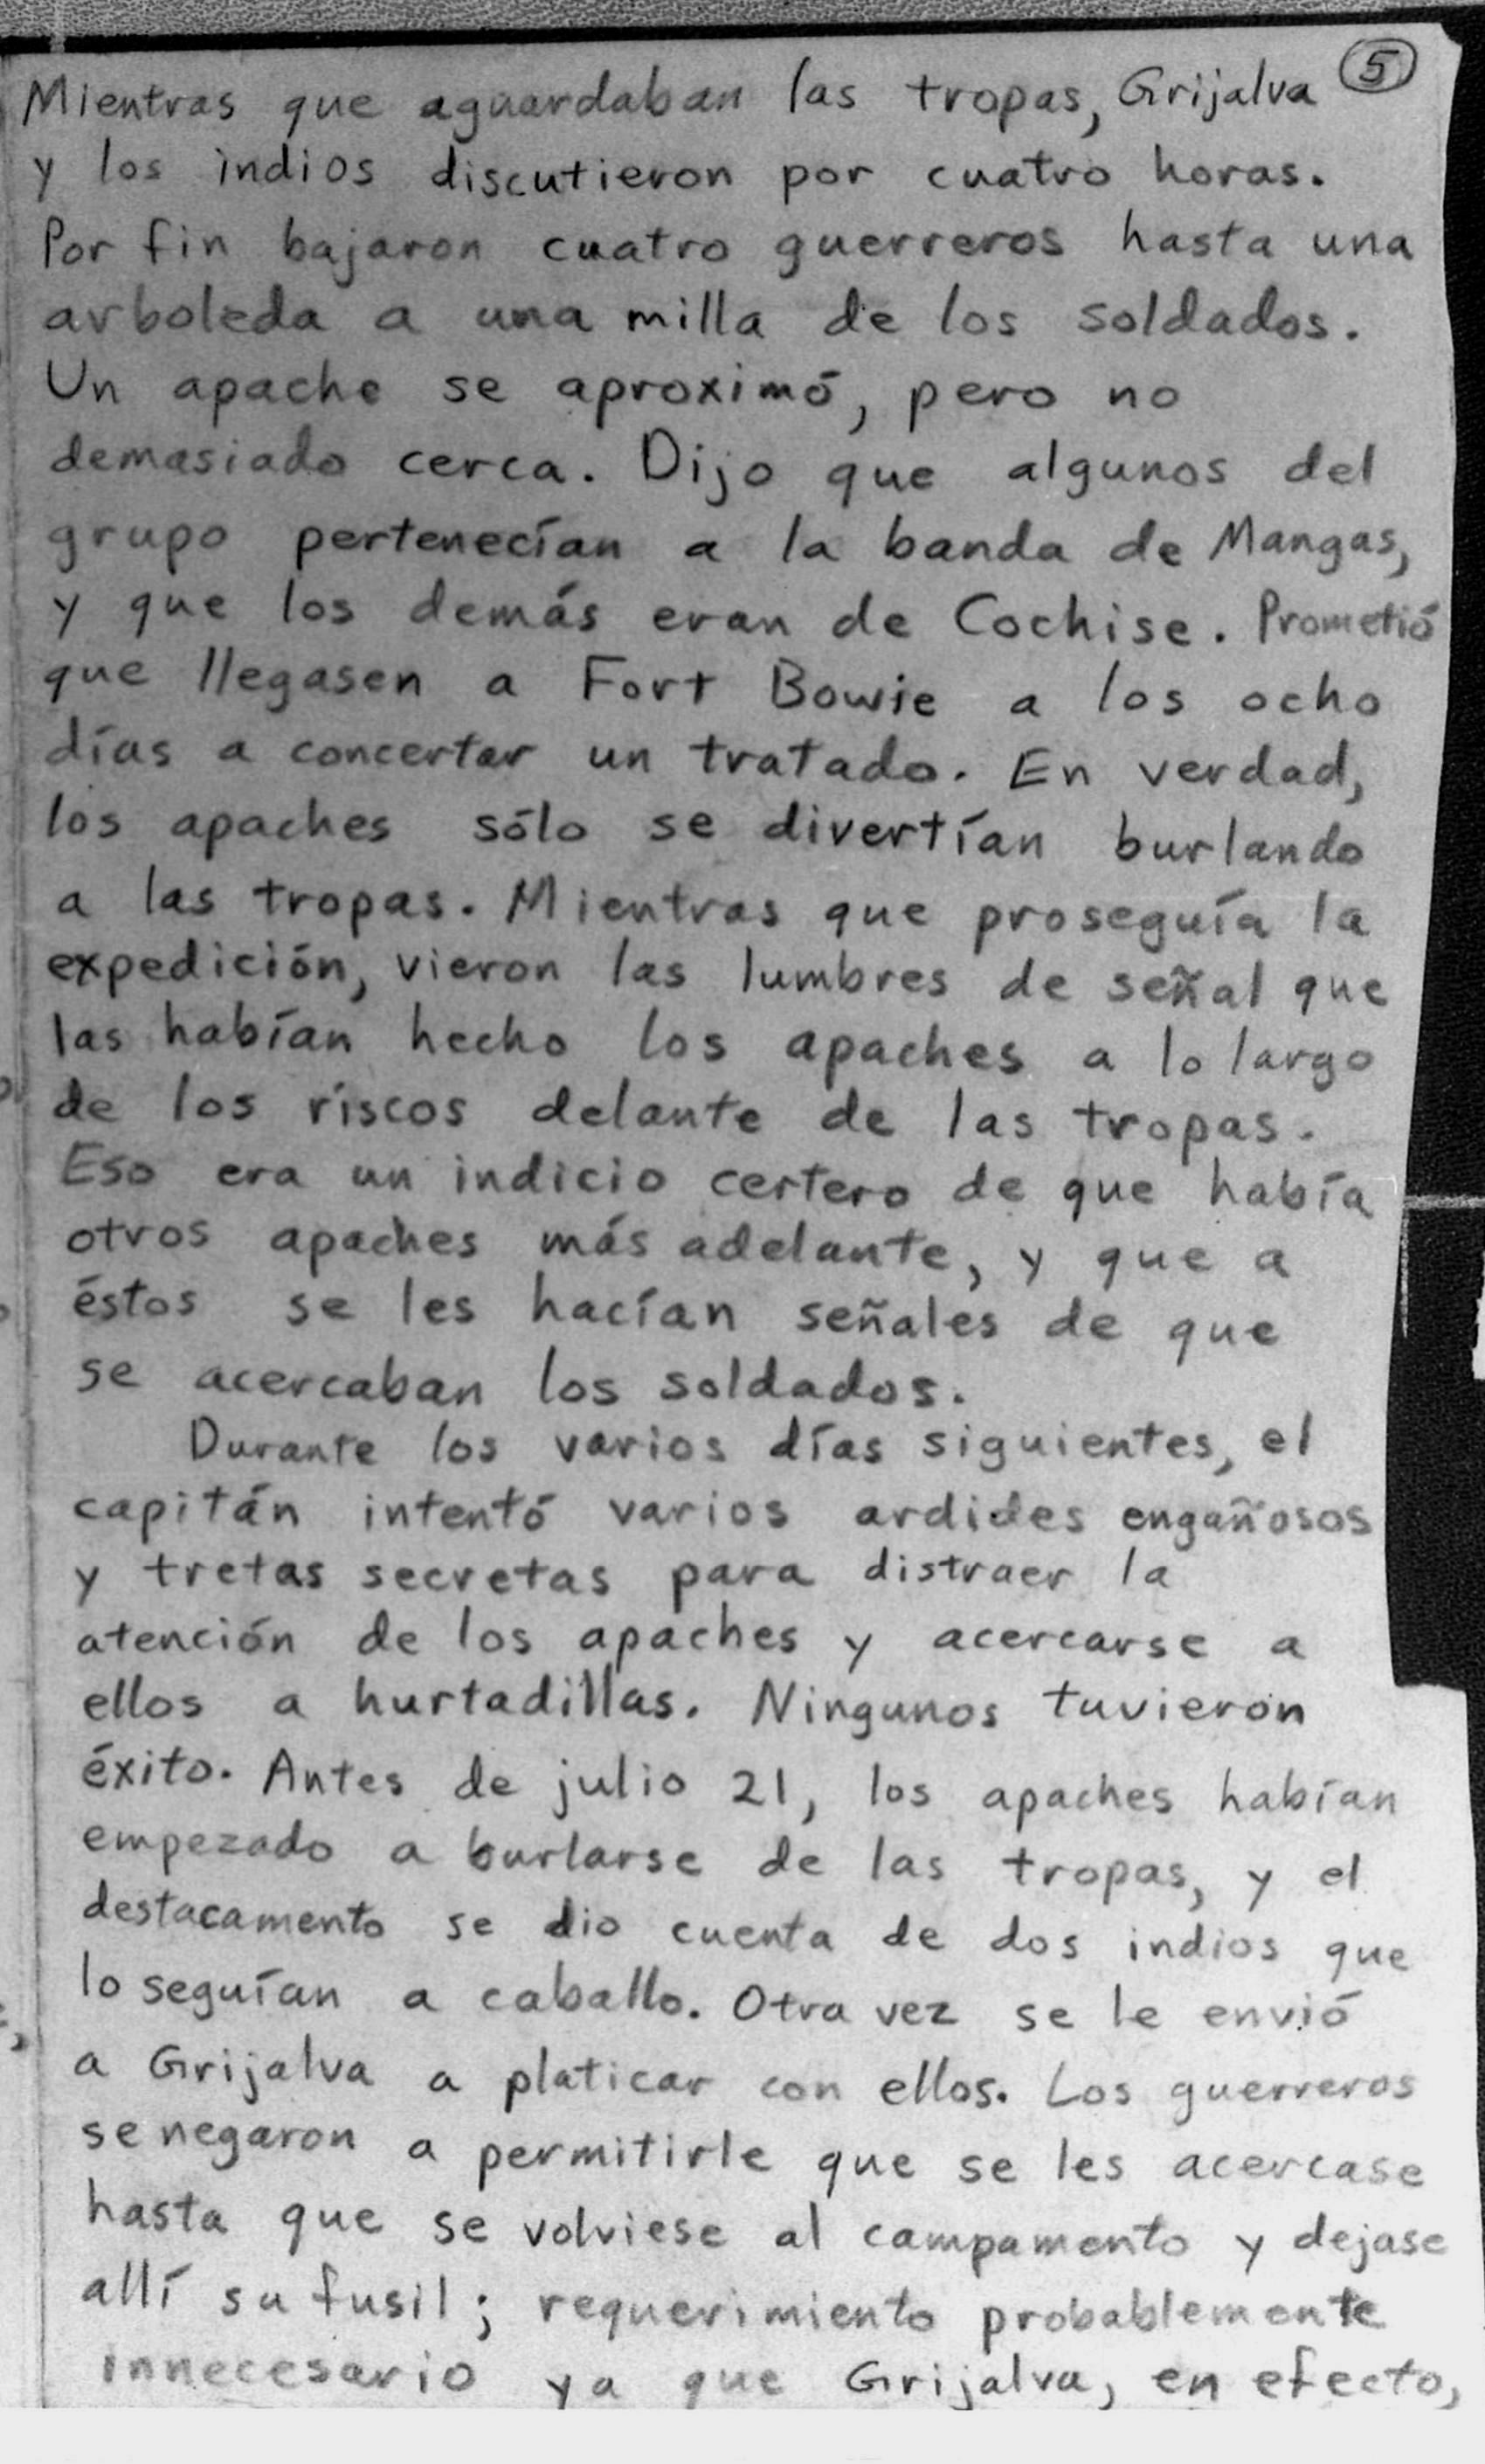 5
Mientras que aguardaban las tropas, Grijalva
y los indios discutieron por cuatro horas.
Por fin bajaron cuatro guerreros hasta una
arboleda a una milla de los soldados.
Un apache se aproximó, pero no
demasiado cerca. Dijo que algunos del
grupo pertenecían a la banda de Mangas,
y que los demás eran de Cochise. Prometió
que llegasen a Fort Bowie a los ocho
días a concertar un tratado. En verdad,
los apaches sólo se divertían burlando
a las tropas. Mientras que proseguía la
expedición, vieron las lumbres de señal que
las habían hecho los apaches a lo largo
de los riscos delante de las tropas.
Eso era un indicio certero de que había
otros apaches más adelante, y que a
éstos se les hacían señales de que
se acercaban los soldados.
Durante los varios días siguientes, el
capitán intentó varios ardides engañosos
y tretas secretas para distraer la
atención de los apaches y acercarse a
ellos a hurtadillas. Ningunos tuvieron
éxito. Antes de julio 21, los apaches habían
empezado a burlarse de las tropas, y el
destacamento se dio cuenta de dos indios que
lo seguían a caballo. Otra vez se le envió
a Grijalva a platicar con ellos. Los guerreros
se negaron a permitirle que se les acercase
hasta que se volviese al campamento y dejase
allí su fusil; requerimiento probablemente
innecesario ya que Grijalva, en efecto,